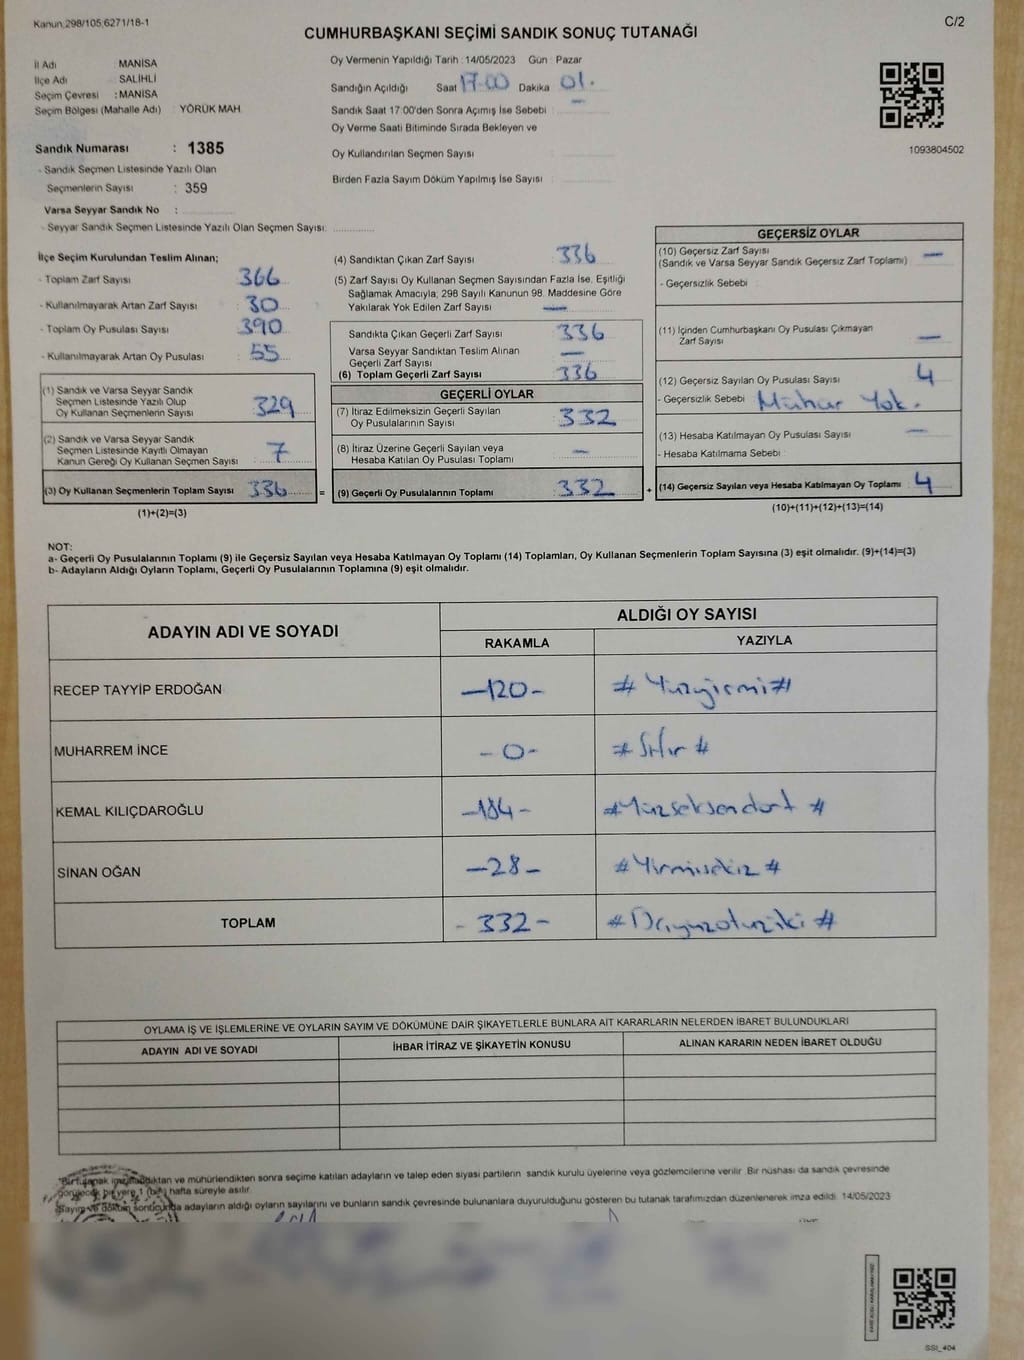 Kanun 298/105,6271/18-1
C/2
CUMHURBAŞKANI SEÇİMİ SANDIK SONUÇ TUTANAĞI
İl Adı MANİSA
İlçe Adı SALİHLİ
Seçim Çevresi : MANİSA
Seçim Bölgesi (Mahalle Adı) : YÖRÜK MAH.
Sandık Numarası : 1385
- Sandık Seçmen Listesinde Yazılı Olan
Seçmenlerin Sayısı : 359
Varsa Seyyar Sandık No :
- Seyyar Sandık Seçmen Listesinde Yazılı Olan Seçmen Sayısı:
Oy Vermenin Yapıldığı Tarih : 14/05/2023 Gün : Pazar
Sandığın Açıldığı Saat 17:00 Dakika 01.
Sandık Saat 17:00'den Sonra Açımış İse Sebebi : —
Oy Verme Saati Bitiminde Sırada Bekleyen ve
Oy Kullandırılan Seçmen Sayısı :
Birden Fazla Sayım Döküm Yapılmış İse Sayısı :
1093804502
İlçe Seçim Kurulundan Teslim Alınan;
- Toplam Zarf Sayısı : 366
- Kullanılmayarak Artan Zarf Sayısı : 30
- Toplam Oy Pusulası Sayısı : 390
- Kullanılmayarak Artan Oy Pusulası : 55
(1) Sandık ve Varsa Seyyar Sandık
Seçmen Listesinde Yazılı Olup
Oy Kullanan Seçmenlerin Sayısı : 329
(2) Sandık ve Varsa Seyyar Sandık
Seçmen Listesinde Kayıtlı Olmayan
Kanun Gereği Oy Kullanan Seçmen Sayısı : 7
(3) Oy Kullanan Seçmenlerin Toplam Sayısı : 336 =
(1)+(2)=(3)
(4) Sandıktan Çıkan Zarf Sayısı : 336
(5) Zarf Sayısı Oy Kullanan Seçmen Sayısından Fazla İse, Eşitliği
Sağlamak Amacıyla; 298 Sayılı Kanunun 98. Maddesine Göre
Yakılarak Yok Edilen Zarf Sayısı : —
Sandıkta Çıkan Geçerli Zarf Sayısı : 336
Varsa Seyyar Sandıktan Teslim Alınan
Geçerli Zarf Sayısı : —
(6) Toplam Geçerli Zarf Sayısı : 336
GEÇERLİ OYLAR
(7) İtiraz Edilmeksizin Geçerli Sayılan
Oy Pusulalarının Sayısı : 332
(8) İtiraz Üzerine Geçerli Sayılan veya
Hesaba Katılan Oy Pusulası Toplamı : —
(9) Geçerli Oy Pusulalarının Toplamı : 332 +
GEÇERSİZ OYLAR
(10) Geçersiz Zarf Sayısı : —
(Sandık ve Varsa Seyyar Sandık Geçersiz Zarf Toplamı)
- Geçersizlik Sebebi :
(11) İçinden Cumhurbaşkanı Oy Pusulası Çıkmayan
Zarf Sayısı : —
(12) Geçersiz Sayılan Oy Pusulası Sayısı : 4
- Geçersizlik Sebebi : Mühür Yok.
(13) Hesaba Katılmayan Oy Pusulası Sayısı : —
- Hesaba Katılmama Sebebi :
(14) Geçersiz Sayılan veya Hesaba Katılmayan Oy Toplamı : 4
(10)+(11)+(12)+(13)=(14)
NOT:
a- Geçerli Oy Pusulalarının Toplamı (9) ile Geçersiz Sayılan veya Hesaba Katılmayan Oy Toplamı (14) Toplamları, Oy Kullanan Seçmenlerin Toplam Sayısına (3) eşit olmalıdır. (9)+(14)=(3)
b- Adayların Aldığı Oyların Toplamı, Geçerli Oy Pusulalarının Toplamına (9) eşit olmalıdır.
ADAYIN ADI VE SOYADI
ALDIĞI OY SAYISI
RAKAMLA YAZIYLA
RECEP TAYYİP ERDOĞAN —120— # Yüzyirmi #
MUHARREM İNCE - 0 - # Sıfır #
KEMAL KILIÇDAROĞLU —184— # Yüzseksendört #
SİNAN OĞAN —28— # Yirmisekiz #
TOPLAM - 332 - # Üçyüzotuziki #
OYLAMA İŞ VE İŞLEMLERİNE VE OYLARIN SAYIM VE DÖKÜMÜNE DAİR ŞİKAYETLERLE BUNLARA AİT KARARLARIN NELERDEN İBARET BULUNDUKLARI
ADAYIN ADI VE SOYADI İHBAR İTİRAZ VE ŞİKAYETİN KONUSU ALINAN KARARIN NEDEN İBARET OLDUĞU
*Bir tutanak imzalandıktan ve mühürlendikten sonra seçime katılan adayların ve talep eden siyasi partilerin sandık kurulu üyelerine veya gözlemcilerine verilir. Bir nüshası da sandık çevresinde
görülecek bir yere 1 (bir) hafta süreyle asılır.
*Sayım ve döküm sonucunda adayların aldığı oyların sayılarını ve bunların sandık çevresinde bulunanlara duyurulduğunu gösteren bu tutanak tarafımızdan düzenlenerek imza edildi. 14/05/2023
SSI_404